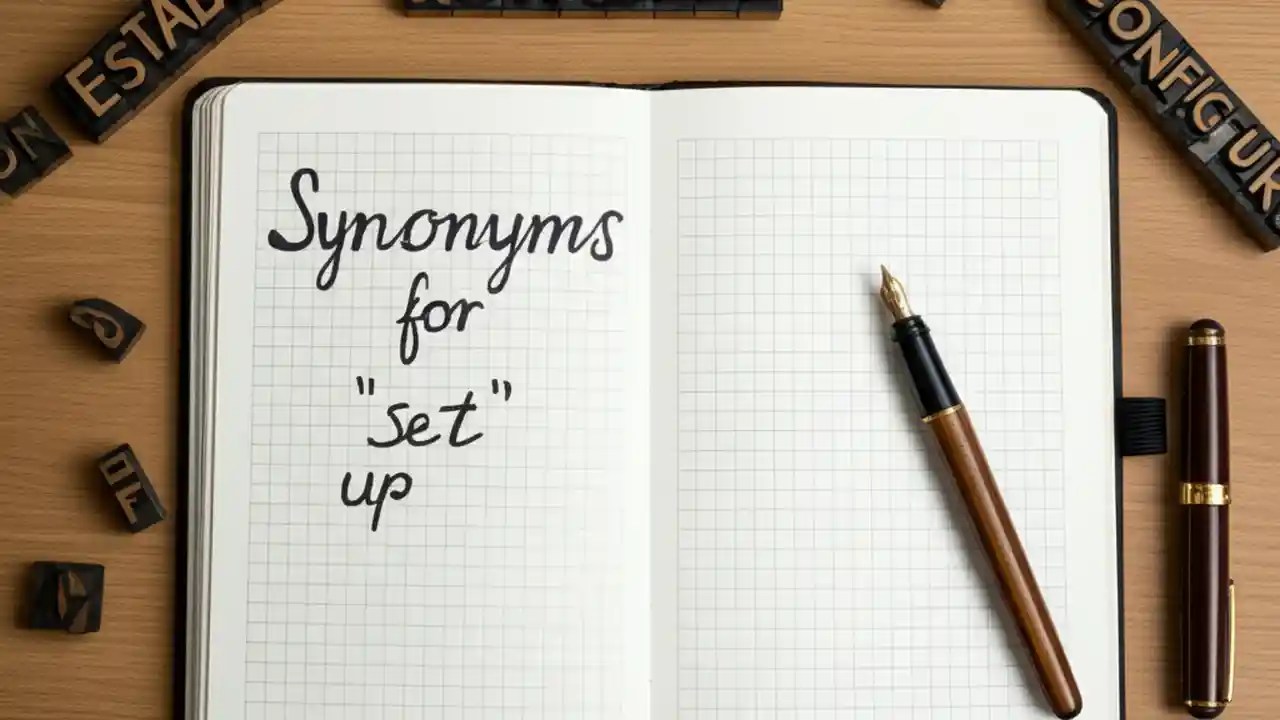 ESTAB
CONFIGUR
ON
Synonyms
for
"set"
up